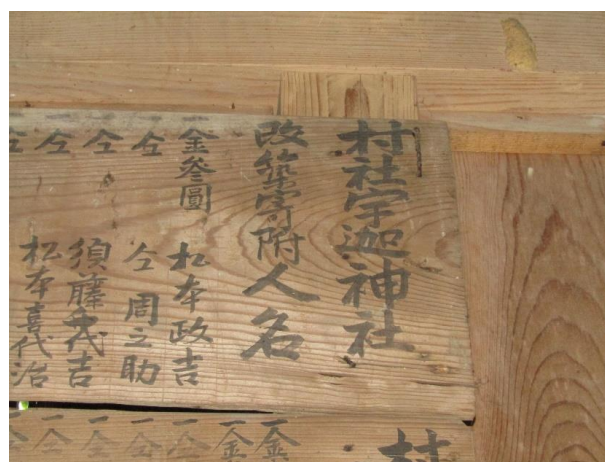 村社宇迦神社
改築寄附人名
一金参圓 松本政吉
一仝 仝周之助
一仝 須藤千代吉
一仝 松本喜代治
村
一金
一金
一仝
一仝
一仝
一仝